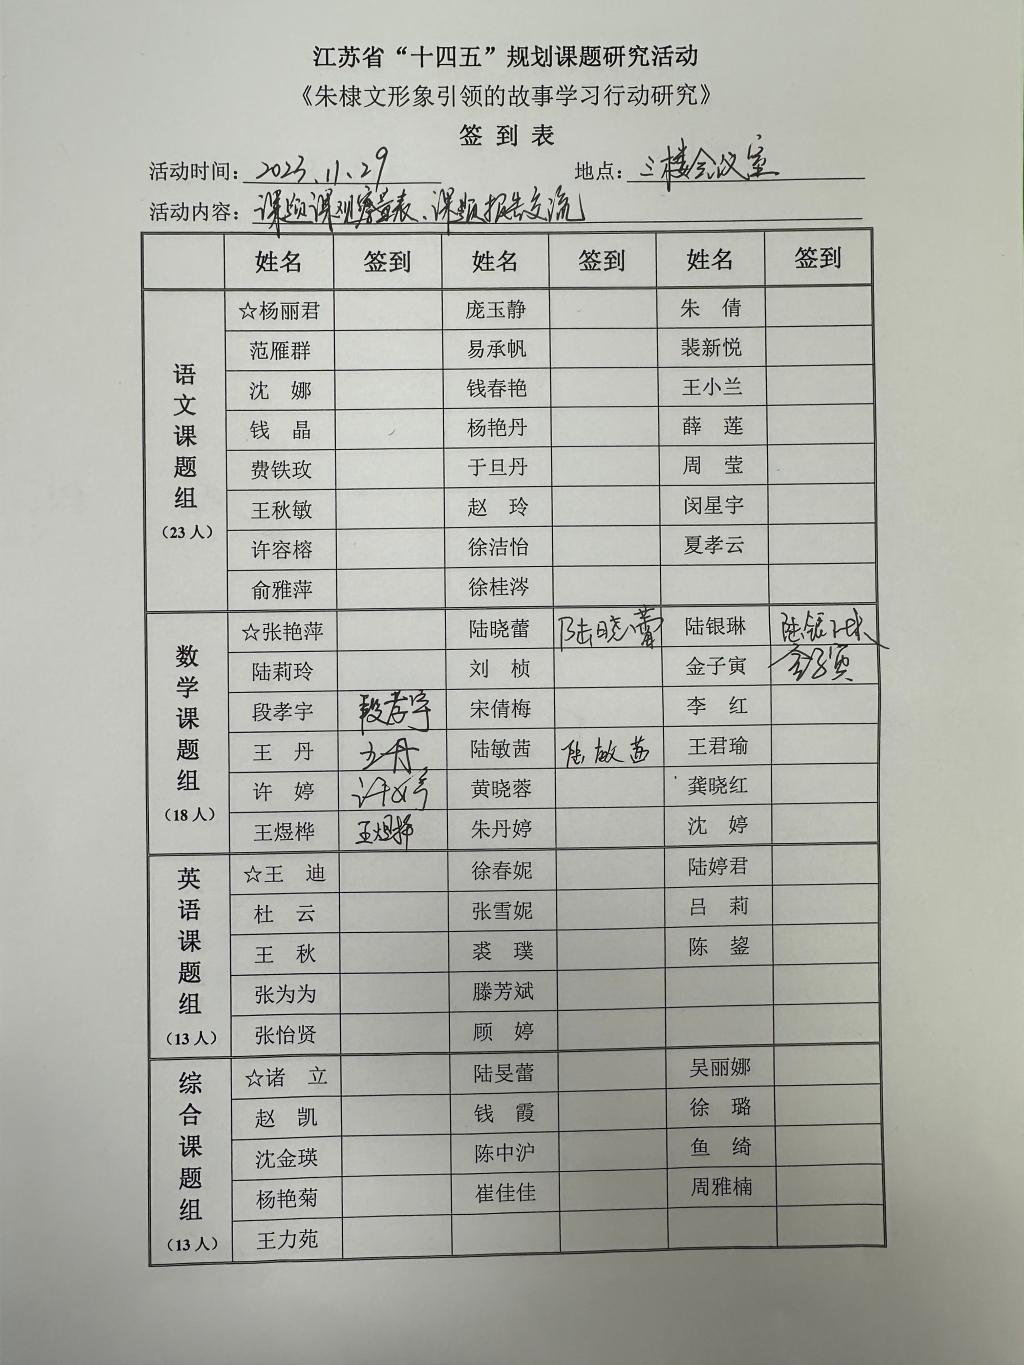 江苏省“十四五”规划课题研究活动
《朱棣文形象引领的故事学习行动研究》
签 到 表
活动时间: 2023.11.29 地点: 三楼会议室
活动内容: 课题课观察量表、课题报告交流
姓名 签到 姓名 签到 姓名 签到
语文课题组（23人）
☆杨丽君 庞玉静 朱 倩
范雁群 易承帆 裴新悦
沈 娜 钱春艳 王小兰
钱 晶 杨艳丹 薛 莲
费铁玫 于旦丹 周 莹
王秋敏 赵 玲 闵星宇
许容榕 徐洁怡 夏孝云
俞雅萍 徐桂涔
数学课题组（18人）
☆张艳萍 陆晓蕾 陆晓蕾 陆银琳 陆银琳
陆莉玲 刘 桢 金子寅 金子寅
段孝宇 段孝宇 宋倩梅 李 红
王 丹 王丹 陆敏茜 陆敏茜 王君瑜
许 婷 许婷 黄晓蓉 龚晓红
王煜桦 王煜桦 朱丹婷 沈 婷
英语课题组（13人）
☆王 迪 徐春妮 陆婷君
杜 云 张雪妮 吕 莉
王 秋 裘 璞 陈 鋆
张为为 滕芳斌
张怡贤 顾 婷
综合课题组（13人）
☆诸 立 陆旻蕾 吴丽娜
赵 凯 钱 霞 徐 璐
沈金瑛 陈中沪 鱼 绮
杨艳菊 崔佳佳 周雅楠
王力苑